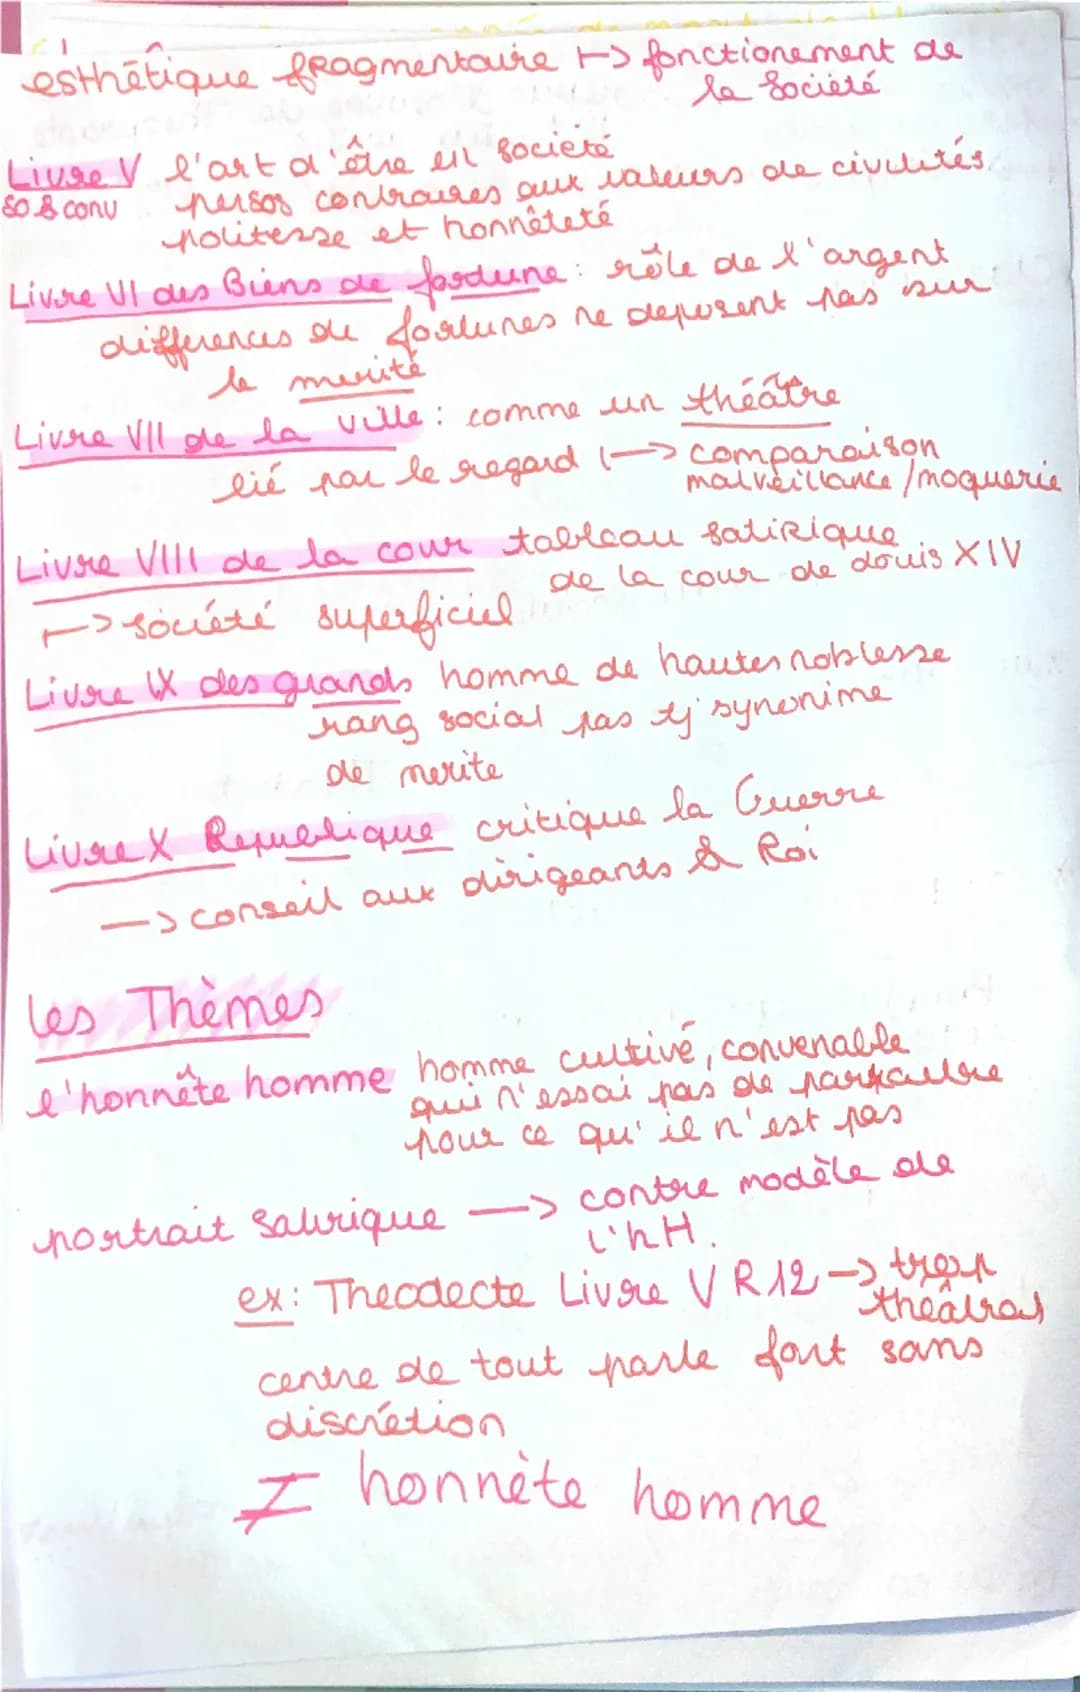 esthétique fragmentaire ↦ fonctionement de
la société
Livre V l'art d'être en société
so & conv persos contraires aux valeurs de civilités
politesse et honnêteté
Livre VI des Biens de fortune : rôle de l'argent
differences de fortunes ne deposent pas sur
le merité
Livre VII de la ville : comme un théâtre
lié par le regard ↦ comparaison
malveillance / moquerie
Livre VIII de la cour tableau satirique
de la cour de Louis XIV
↦ société superficiel
Livre IX des grands homme de hautes noblesse
rang social pas tj synonime
de merite
Livre X Republique critique la Guerre
→ conseil aux dirigeants & Roi
les Thèmes
l'honnête homme homme cultivé, convenable
qui n'essai pas de parraitre
pour ce qu'il n'est pas
portrait satirique → contre modèle de
l'hH.
ex: Theodecte Livre V R12 → trop
théâtral
centre de tout parle fort sans
discrétion
≠ honnète homme